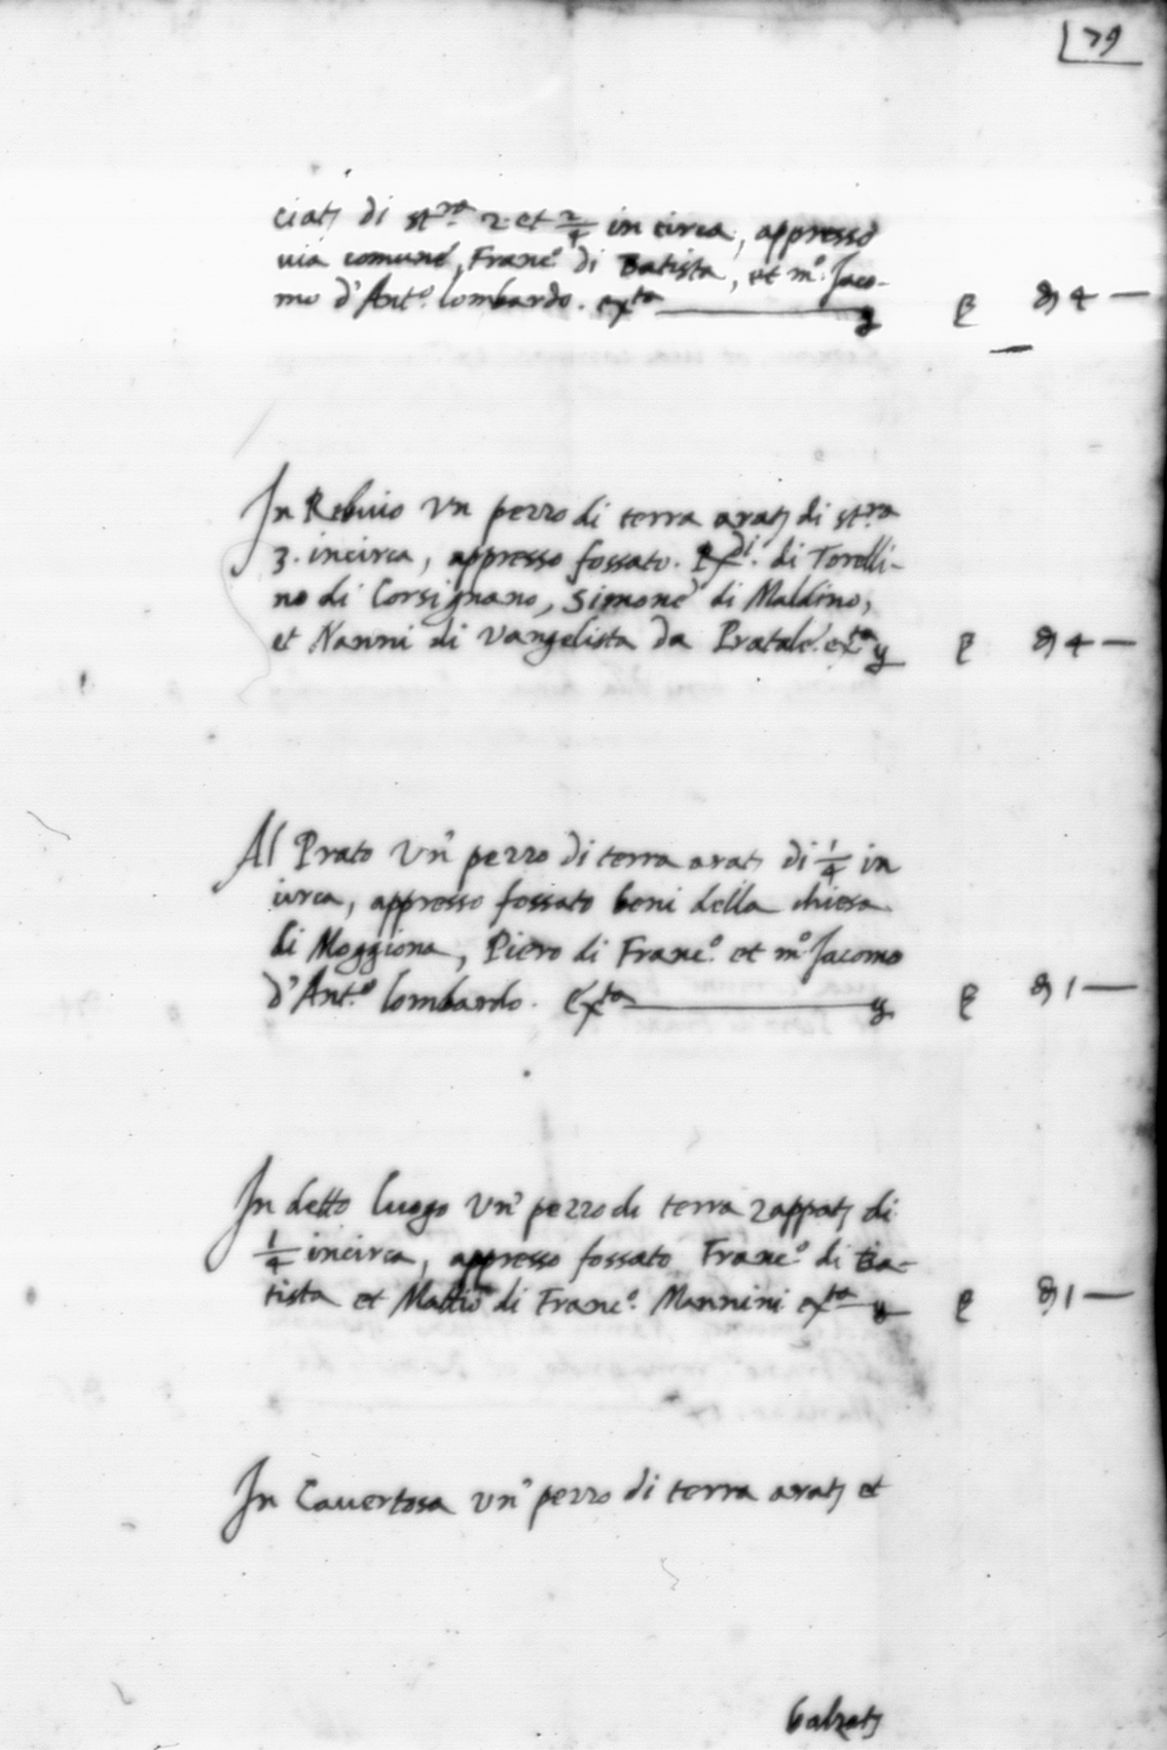 79
ciatj di st.ra 2. et 2/4 in circa, appresso
via comune, Franc.o di Batista, et m.o Jaco-
mo d'Ant.o lombardo. exta ————— y £ ꝺ 4 —
In Rebuio un pezzo di terra aratj di st.ra
3. incirca, appresso fossato. di Torelli-
no di Corsignano, Simone di Maldino,
et Nanni di Vangelista da Pratale. exta y £ ꝺ 4 —
Al Prato un pezzo di terra aratj di 1/4 in
circa, appresso fossato beni della chiesa
di Moggiona, Piero di Franc.o et m.o Jacomo
d'Ant.o lombardo. Exta ————— y £ ꝺ 1 —
In detto luogo un pezzo di terra zappatj di
1/4 incirca, appresso fossato Franc.o di Ba-
tista et Mattio di Franc.o Mannini exta — y £ ꝺ 1 —
In Cavertosa un pezzo di terra aratj et
balzatj